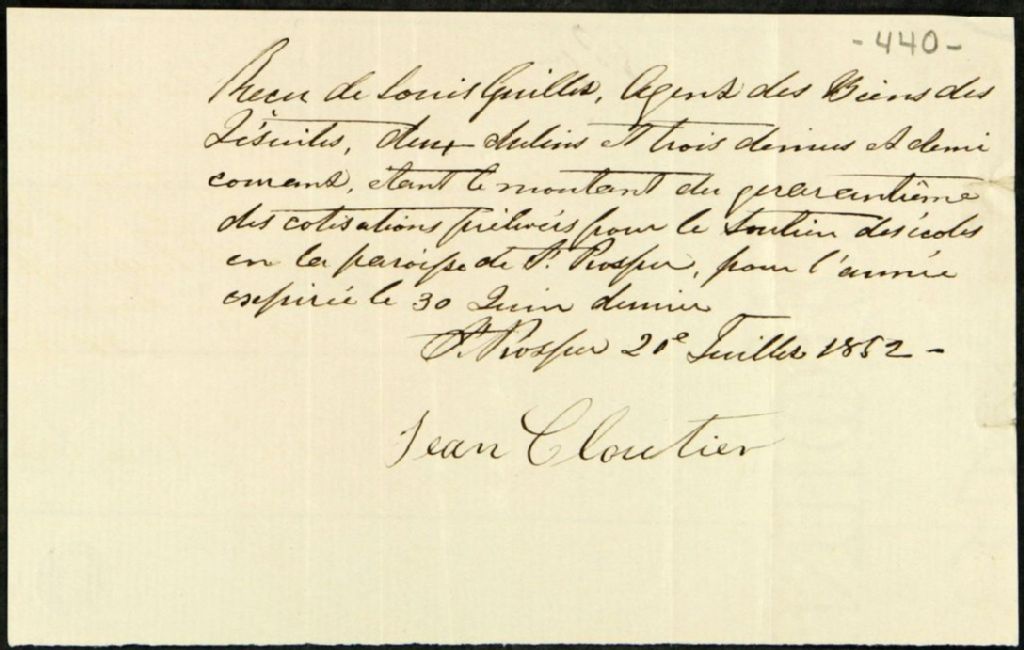 - 440 -
Recu de Louis Guillet, Agent des Biens des
Jésuites, deux chelins et trois deniers et demi
courant, étant le montant du quarantième
des cotisations prélevés pour le soutien des écoles
en la paroisse de St. Prosper, pour l'année
expirée le 30 Juin dernier
St. Prosper 21e Juillet 1852 -
Jean Cloutier